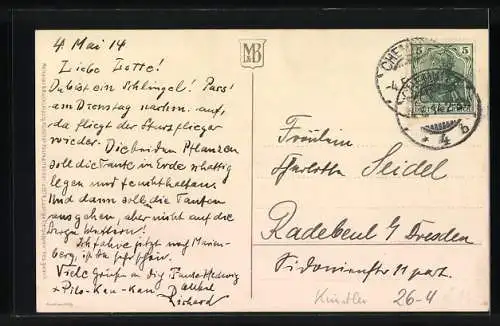 4 Mai 14
Liebe Lotte!
Du bist ein Schlingel! Pass'
am Dienstag nachm. auf,
da fliegt der Sturzflieger
wieder. Die beiden Pflanzen
soll die Tante in Erde schattig
legen und feucht halten.
Und dann soll die Tanten
ausgehen, aber nicht auf die
Berge klettern!
Ich fahre jetzt nach Marien-
berg, ist
Viele Grüße an die Tante Hedwig
+ Pilo-Kau-Kau Onkel
Richard
MB
5 5
CHEMNITZ
Fräulein
Charlotte Seidel
Radebeul b/ Dresden
Sidonienstr 11 part.
Künstler 26-4